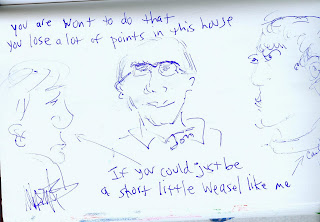 you are wont to do that
you lose a lot of points in this house
Tom
If you could just be
a short little weasel like me